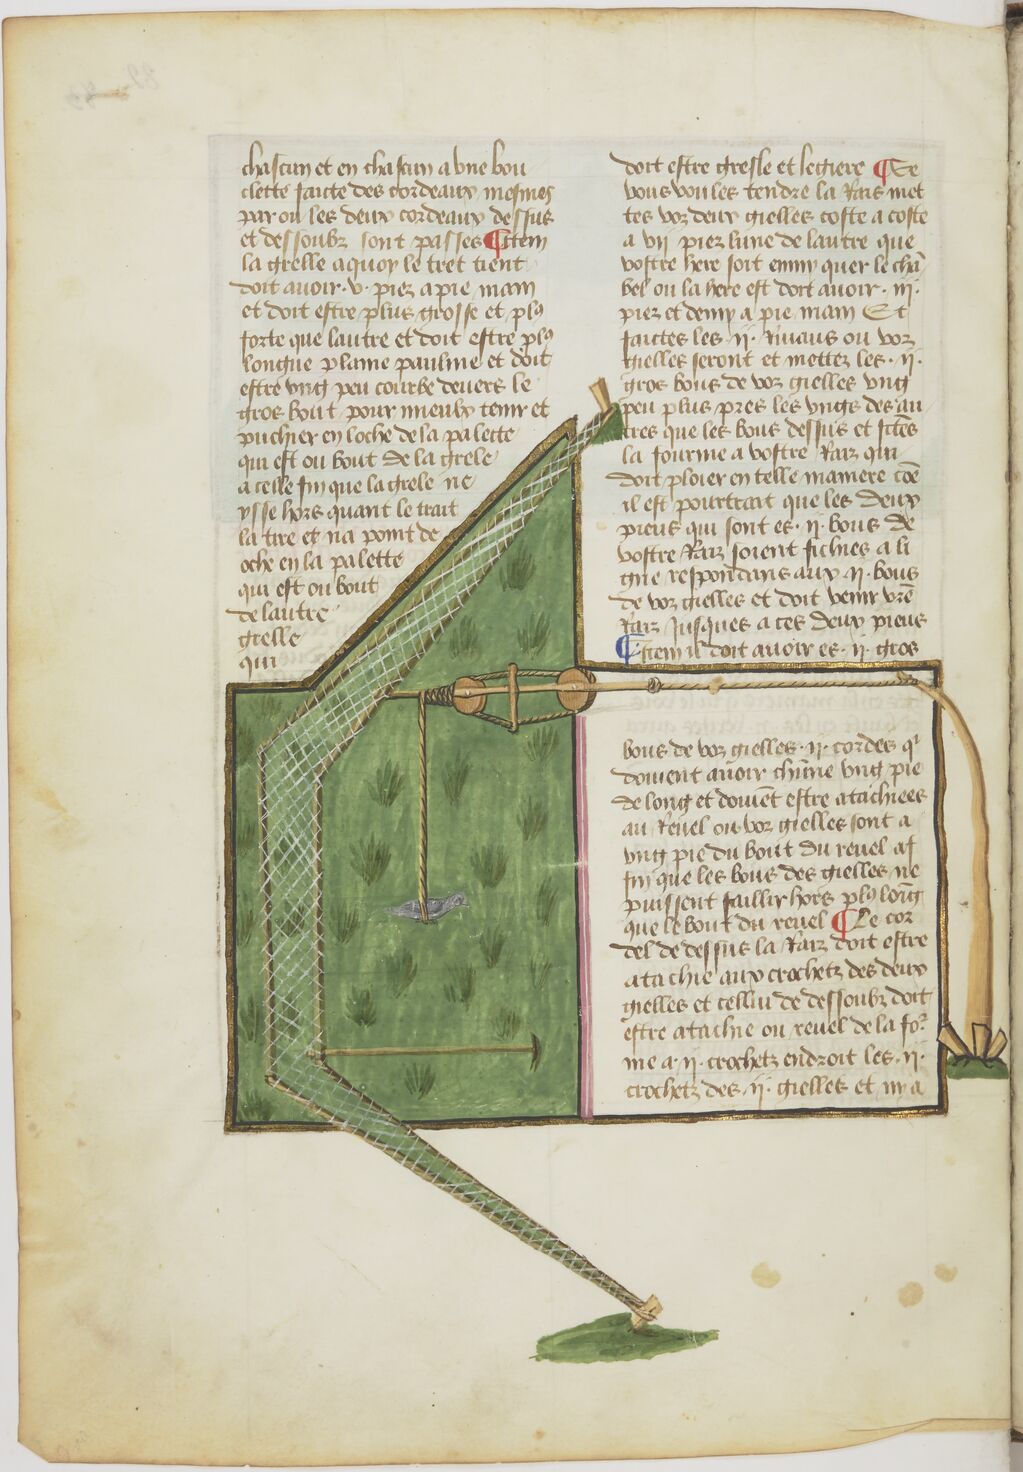 chascun et en chascun a vne bou
clette faicte des cordeaux mesmes
par ou les deux cordeaux dessus
et dessoubz sont passes ¶ Item
la grelle a quoy le tret tient
doit auoir · v · piez a pie main
et doit estre plus grosse et plꝰ
forte que lautre et doit estre plꝰ
longue plaine paulme et doit
estre vng peu courbe deuers le
gros bout pour mieulx tenir et
puchier en loche de la palette
qui est ou bout de la grele
a celle fin que la grele ne
ysse hors quant le trait
la tire et na point de
oche en la palette
qui est ou bout
de lautre
grelle
qui
doit estre gresle et legiere ¶ Se
vous voules tendre la Rais met
tes voz deux gielles coste a coste
a vii piez lune de lautre que
vostre here soit enmy quer le chā
bel ou la here est doit auoir · iii ·
piez et demy a pie main Et
faictes les · ii · Riuaus ou voz
gielles seront et mettez les · ii ·
gros bous de voz gielles vng
peu plus pres les vngs des au
tres que les bous dessus et
la fourme a vostre Raiz qui
doit ploier en telle maniere cōe
il est pourtrait que les deux
pieus qui sont es · ii · bous de
vostre Raiz soient fichies a li
gne respondans aux · ii · bous
de voz gielles et doit venir vr̄e
Raiz jusques a ces deux pieus
¶ Item il doit auoir es · ii · gros
bous de voz gielles · ii · cordes qͥ
doiuent auoir chūne vng pie
de long et doiuēt estre atachiees
au Reuel ou voz gielles sont a
vng pie du bout du reuel af
fin que les bous des gielles ne
puissent saillir hors plꝰ loing
que le bout du reuel ¶ Le cor
del de dessus la Raiz doit estre
atachie aux crochetz des deux
gielles et cellui de dessoubz doit
estre atachie ou reuel de la for
me a · ii · crochetz endroit les · ii ·
crochetz des · ii · gielles et ny a